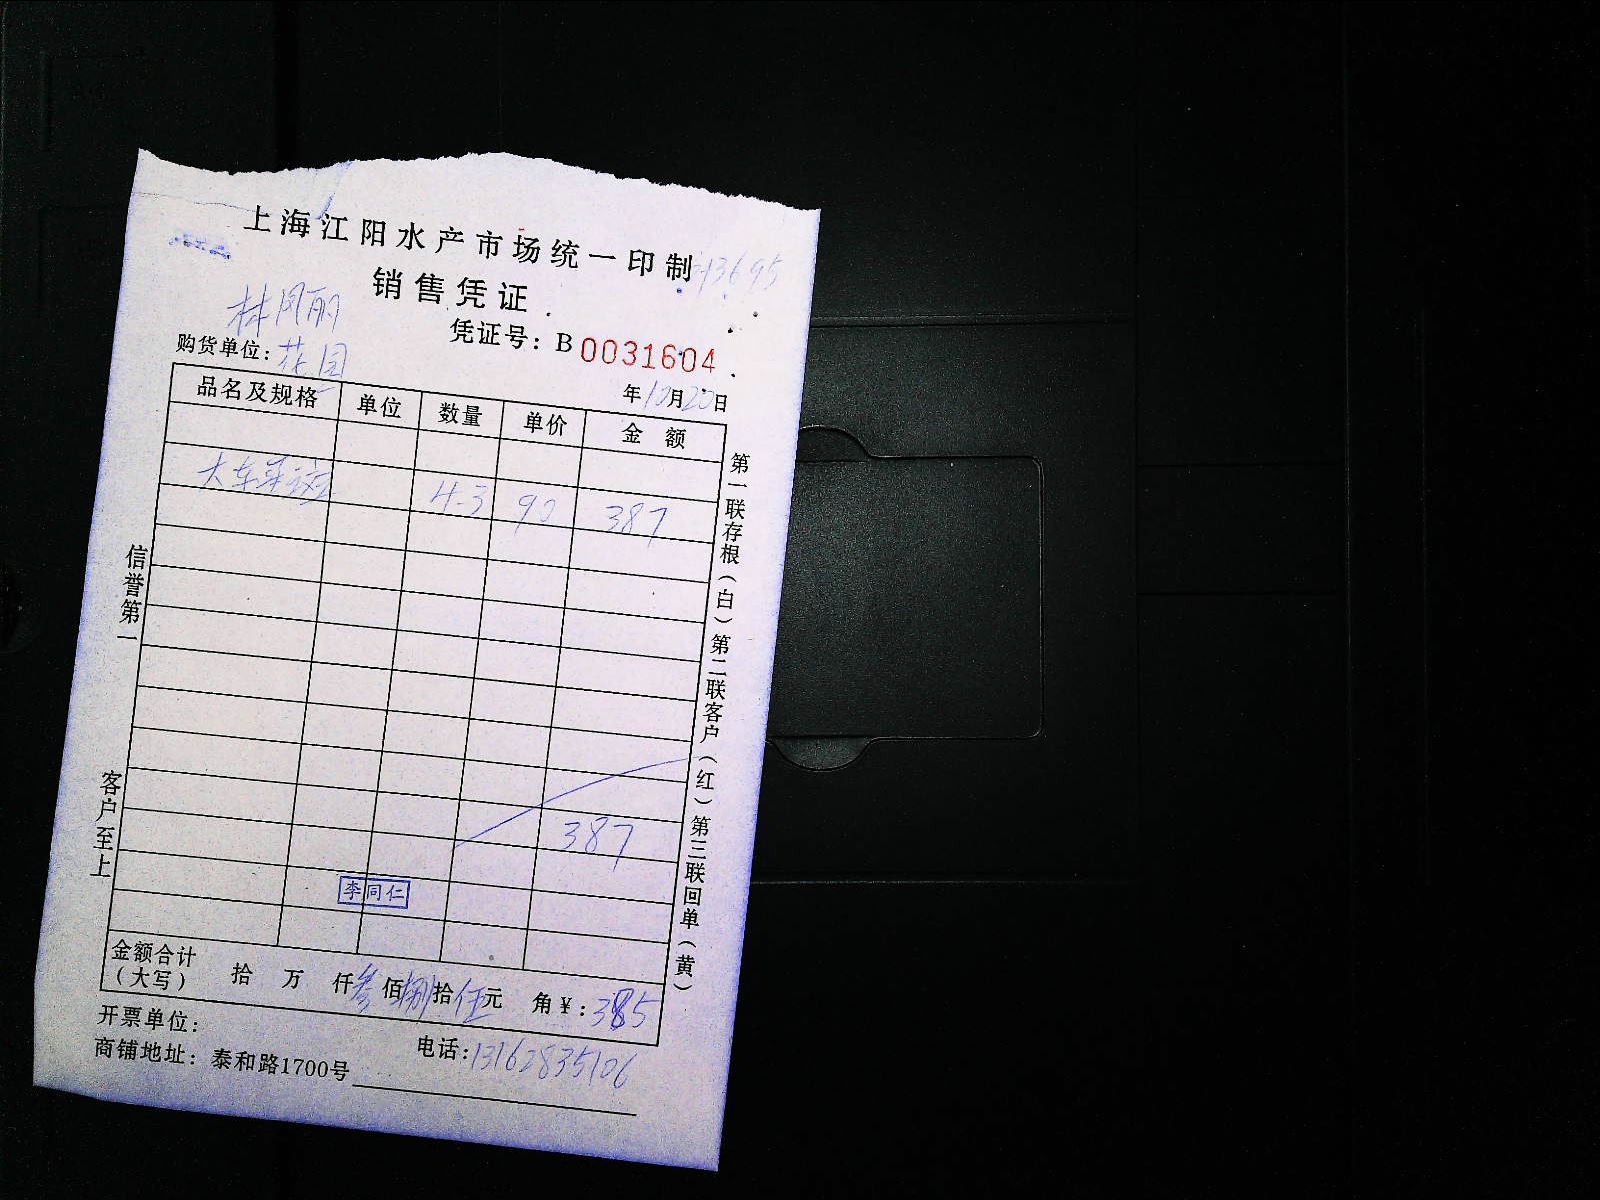 上海江阳水产市场统一印制
销售凭证
林凤丽
凭证号：B 0031604
购货单位：花园
年10月20日
品名及规格 单位 数量 单价 金 额
4-3 90 387
387
李同仁
金额合计（大写） 拾 万 仟叁佰捌拾伍元 角¥：385
开票单位：
电话：13162835106
商铺地址：泰和路1700号
信誉第一
客户至上
第一联存根（白）第二联客户（红）第三联回单（黄）